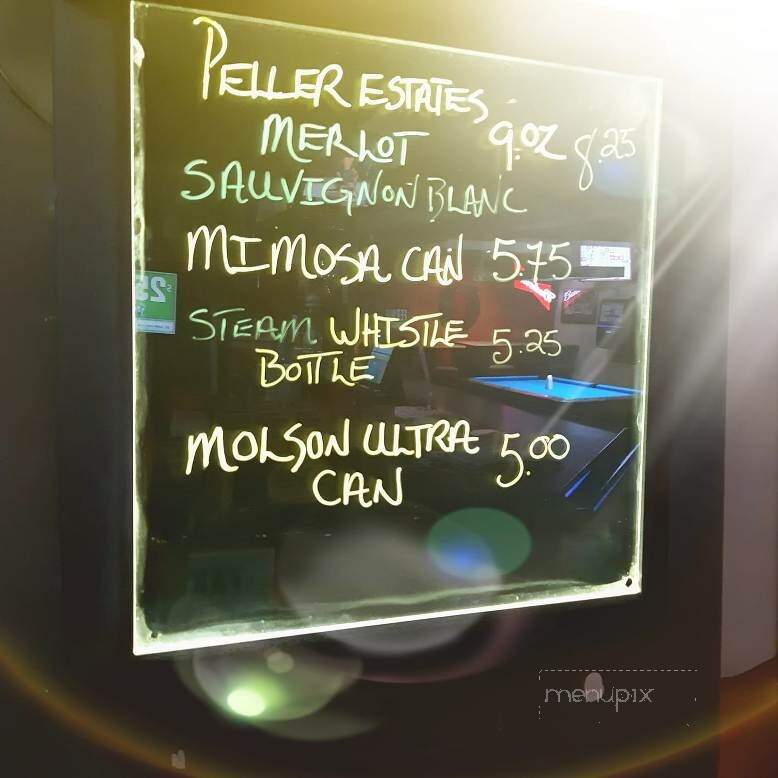 PELLER ESTATES
MERLOT 9.OZ 8.25
SAUVIGNON BLANC
MIMOSA CAN 5.75
STEAM WHISTLE 5.25
BOTTLE
MOLSON ULTRA 5.00
CAN
menupix